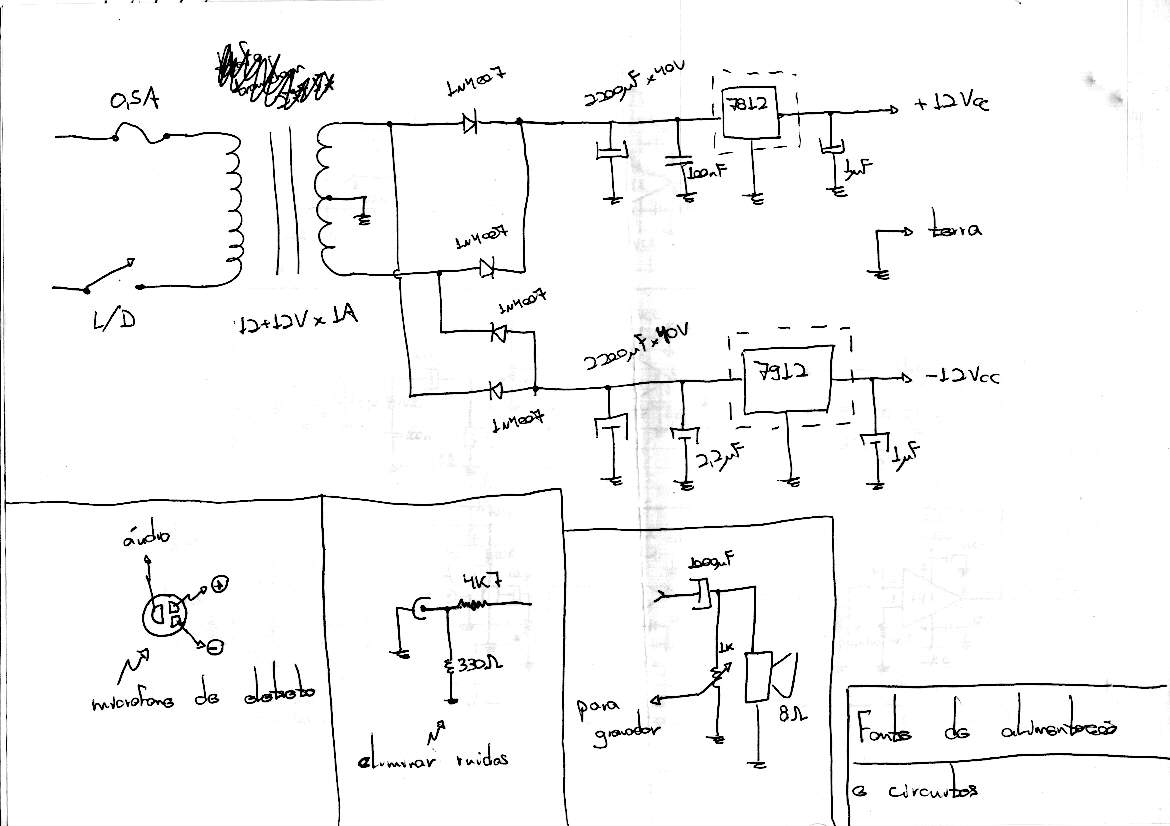 0,5A
L/D
12+12V x 1A
1N4007
1N4007
1N4007
1N4007
2200µF x 40V
100nF
7812
+12Vcc
1µF
terra
2200µF x 40V
2,2µF
7912
-12Vcc
1µF
áudio
+
-
microfone de eletreto
4K7
330Ω
eliminar ruidos
100µF
1K
8Ω
para
gravador
Fonte de alimentação
e circuitos